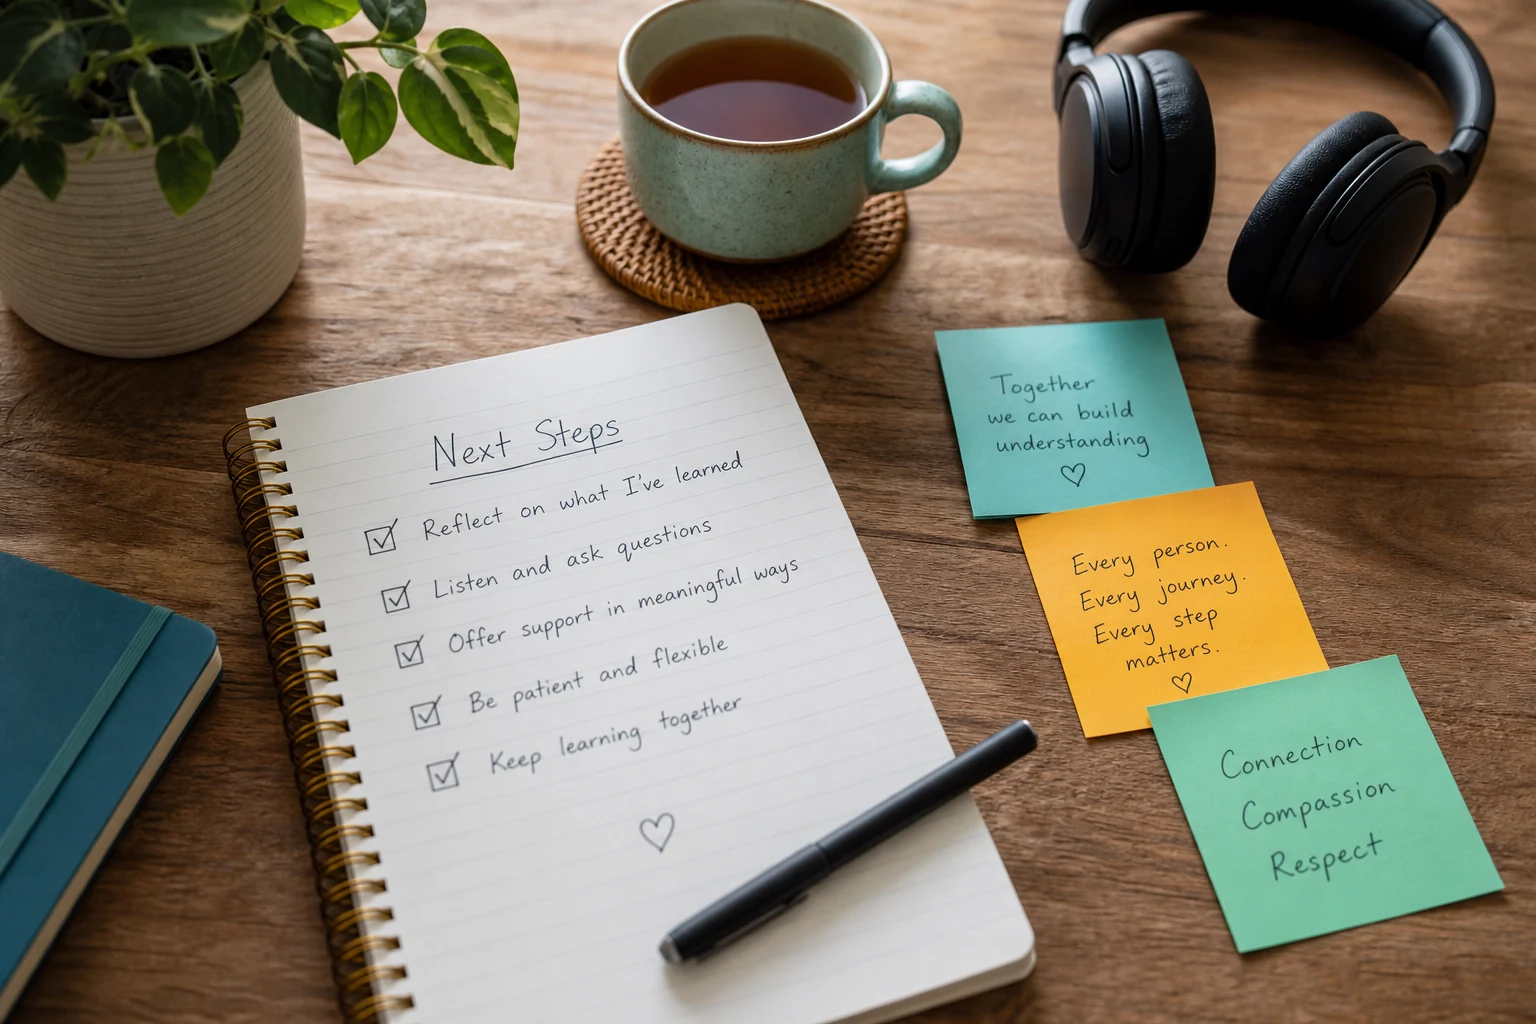 Next Steps
Reflect on what I've learned
Listen and ask questions
Offer support in meaningful ways
Be patient and flexible
Keep learning together
Together
we can build
understanding
Every person.
Every journey.
Every step
matters.
Connection
Compassion
Respect